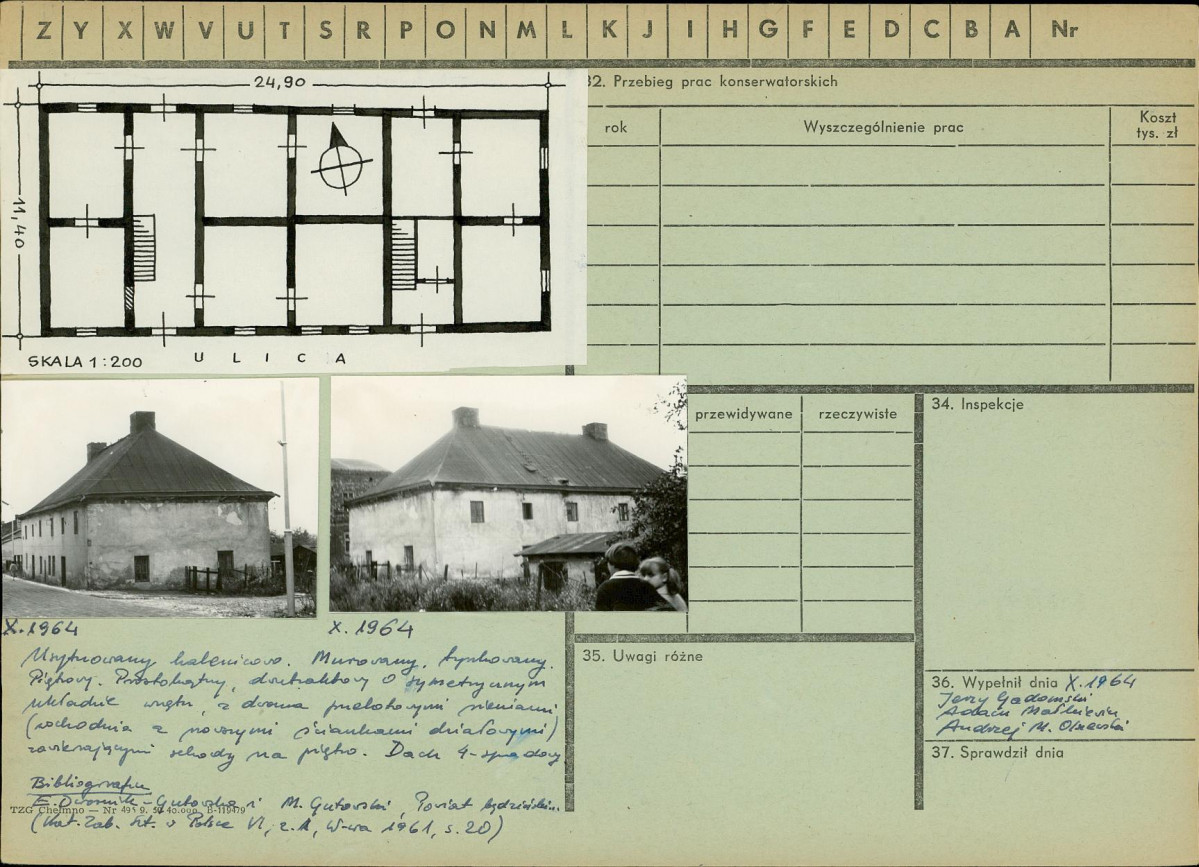 Z Y X W V U T S R P O N M L K J I H G F E D C B A Nr
24,90
11,40
SKALA 1:200
U L I C A
32. Przebieg prac konserwatorskich
rok
Wyszczególnienie prac
Koszt
tys. zł
przewidywane
rzeczywiste
34. Inspekcje
X.1964
X.1964
Usytuowany kalenicowo. Murowany, tynkowany.
Piętrowy. Prostokątny, dwutraktowy o symetrycznym
układzie wnętrz, z dwoma przelotowymi sieniami
(wschodnia z nowszymi ściankami działowymi)
zawierającymi schody na piętro. Dach 4-spadowy
Bibliografia
E. Dwornik-Gutowska i M. Gutowski, Powiat będziński.
TZG Chełmno — Nr 495 9. 59 40.000 B-119479
(Kat. Zab. Szt. w Polsce VI, z. 1, W-wa 1961, s. 20)
35. Uwagi różne
36. Wypełnił dnia X.1964
Jerzy Gadomski
Adam Małkiewicz
Andrzej M. Olszewski
37. Sprawdził dnia